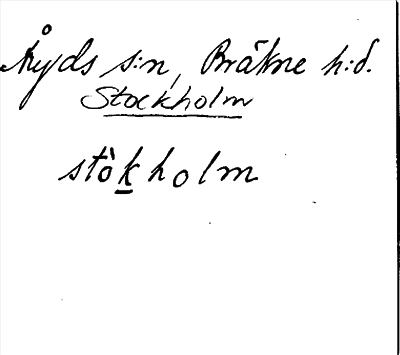 Åryds s:n, Bräkne h:d.
Stockholm
stòk̲holm